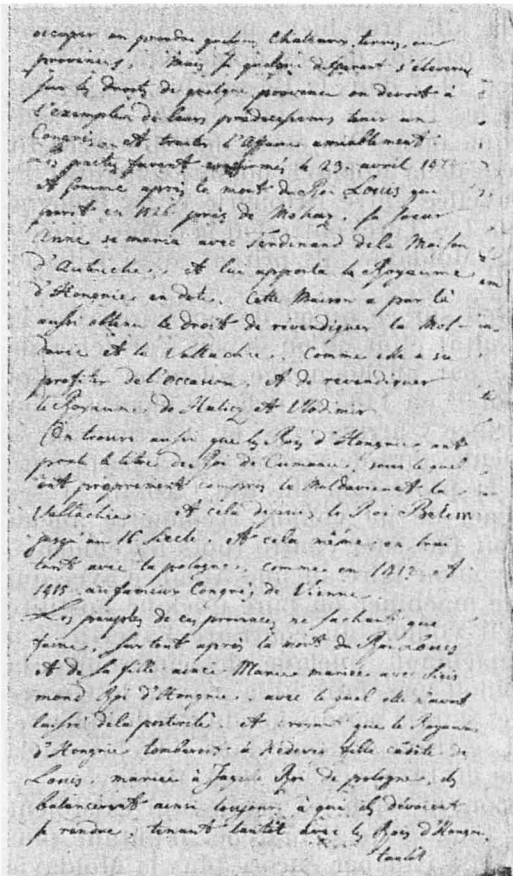 occuper ou prendre quelque Chateaux, terres, ou
provinces. Mais si quelque different s'eleveroit
sur les droits de quelque province on devoit à
l'exemple de leurs prédecesseurs tenir un
Congrès. Et traiter l'Affaire amiablement
ces pactes furent le 23. avril
Et comme après la mort du Roi Louis que
perit en 1526 près de Mohaz. sa soeur
Anne se maria avec Ferdinand de la Maison
d'Autriche. Et lui apporta le Royaume
d'Hongrie en dote. Cette Maison a par là
aussi obtenu le droit de revendiquer la Mol-
davie Et la Vallachie. Comme elle a su
profiter de l'occasion. Et de revendiquer
le Royaume de Halicz Et Vlodimir
On trouve aussi que les Rois d'Hongrie ont
porté le titre de Roi de Cumanie, sous le quel
est proprement compris la Moldavie et la
Vallachie. Et cela depuis le Roi
jusqu'au 16 siecle. Et cela même en trai
tant avec la pologne, comme en 1412 et
1415 au fameux Congrès de Vienne
Les peuples de ces provinces ne sachant que
faire, surtout après la mort du Roi Louis
Et de sa fille ainée Marie mariée avec Sigis
mond Roi d'Hongrie, avec le quel elle n'avoit
laissé de la posterité. Et croiant que le Royaume
d'Hongrie tomberoit à Hedevig fille cadete de
Louis, mariée à Jagele Roi de pologne, ils
balancerent ainsi toujours à qui ils devoient
se rendre, tenant tantôt avec les Rois d'Hongrie
tantôt